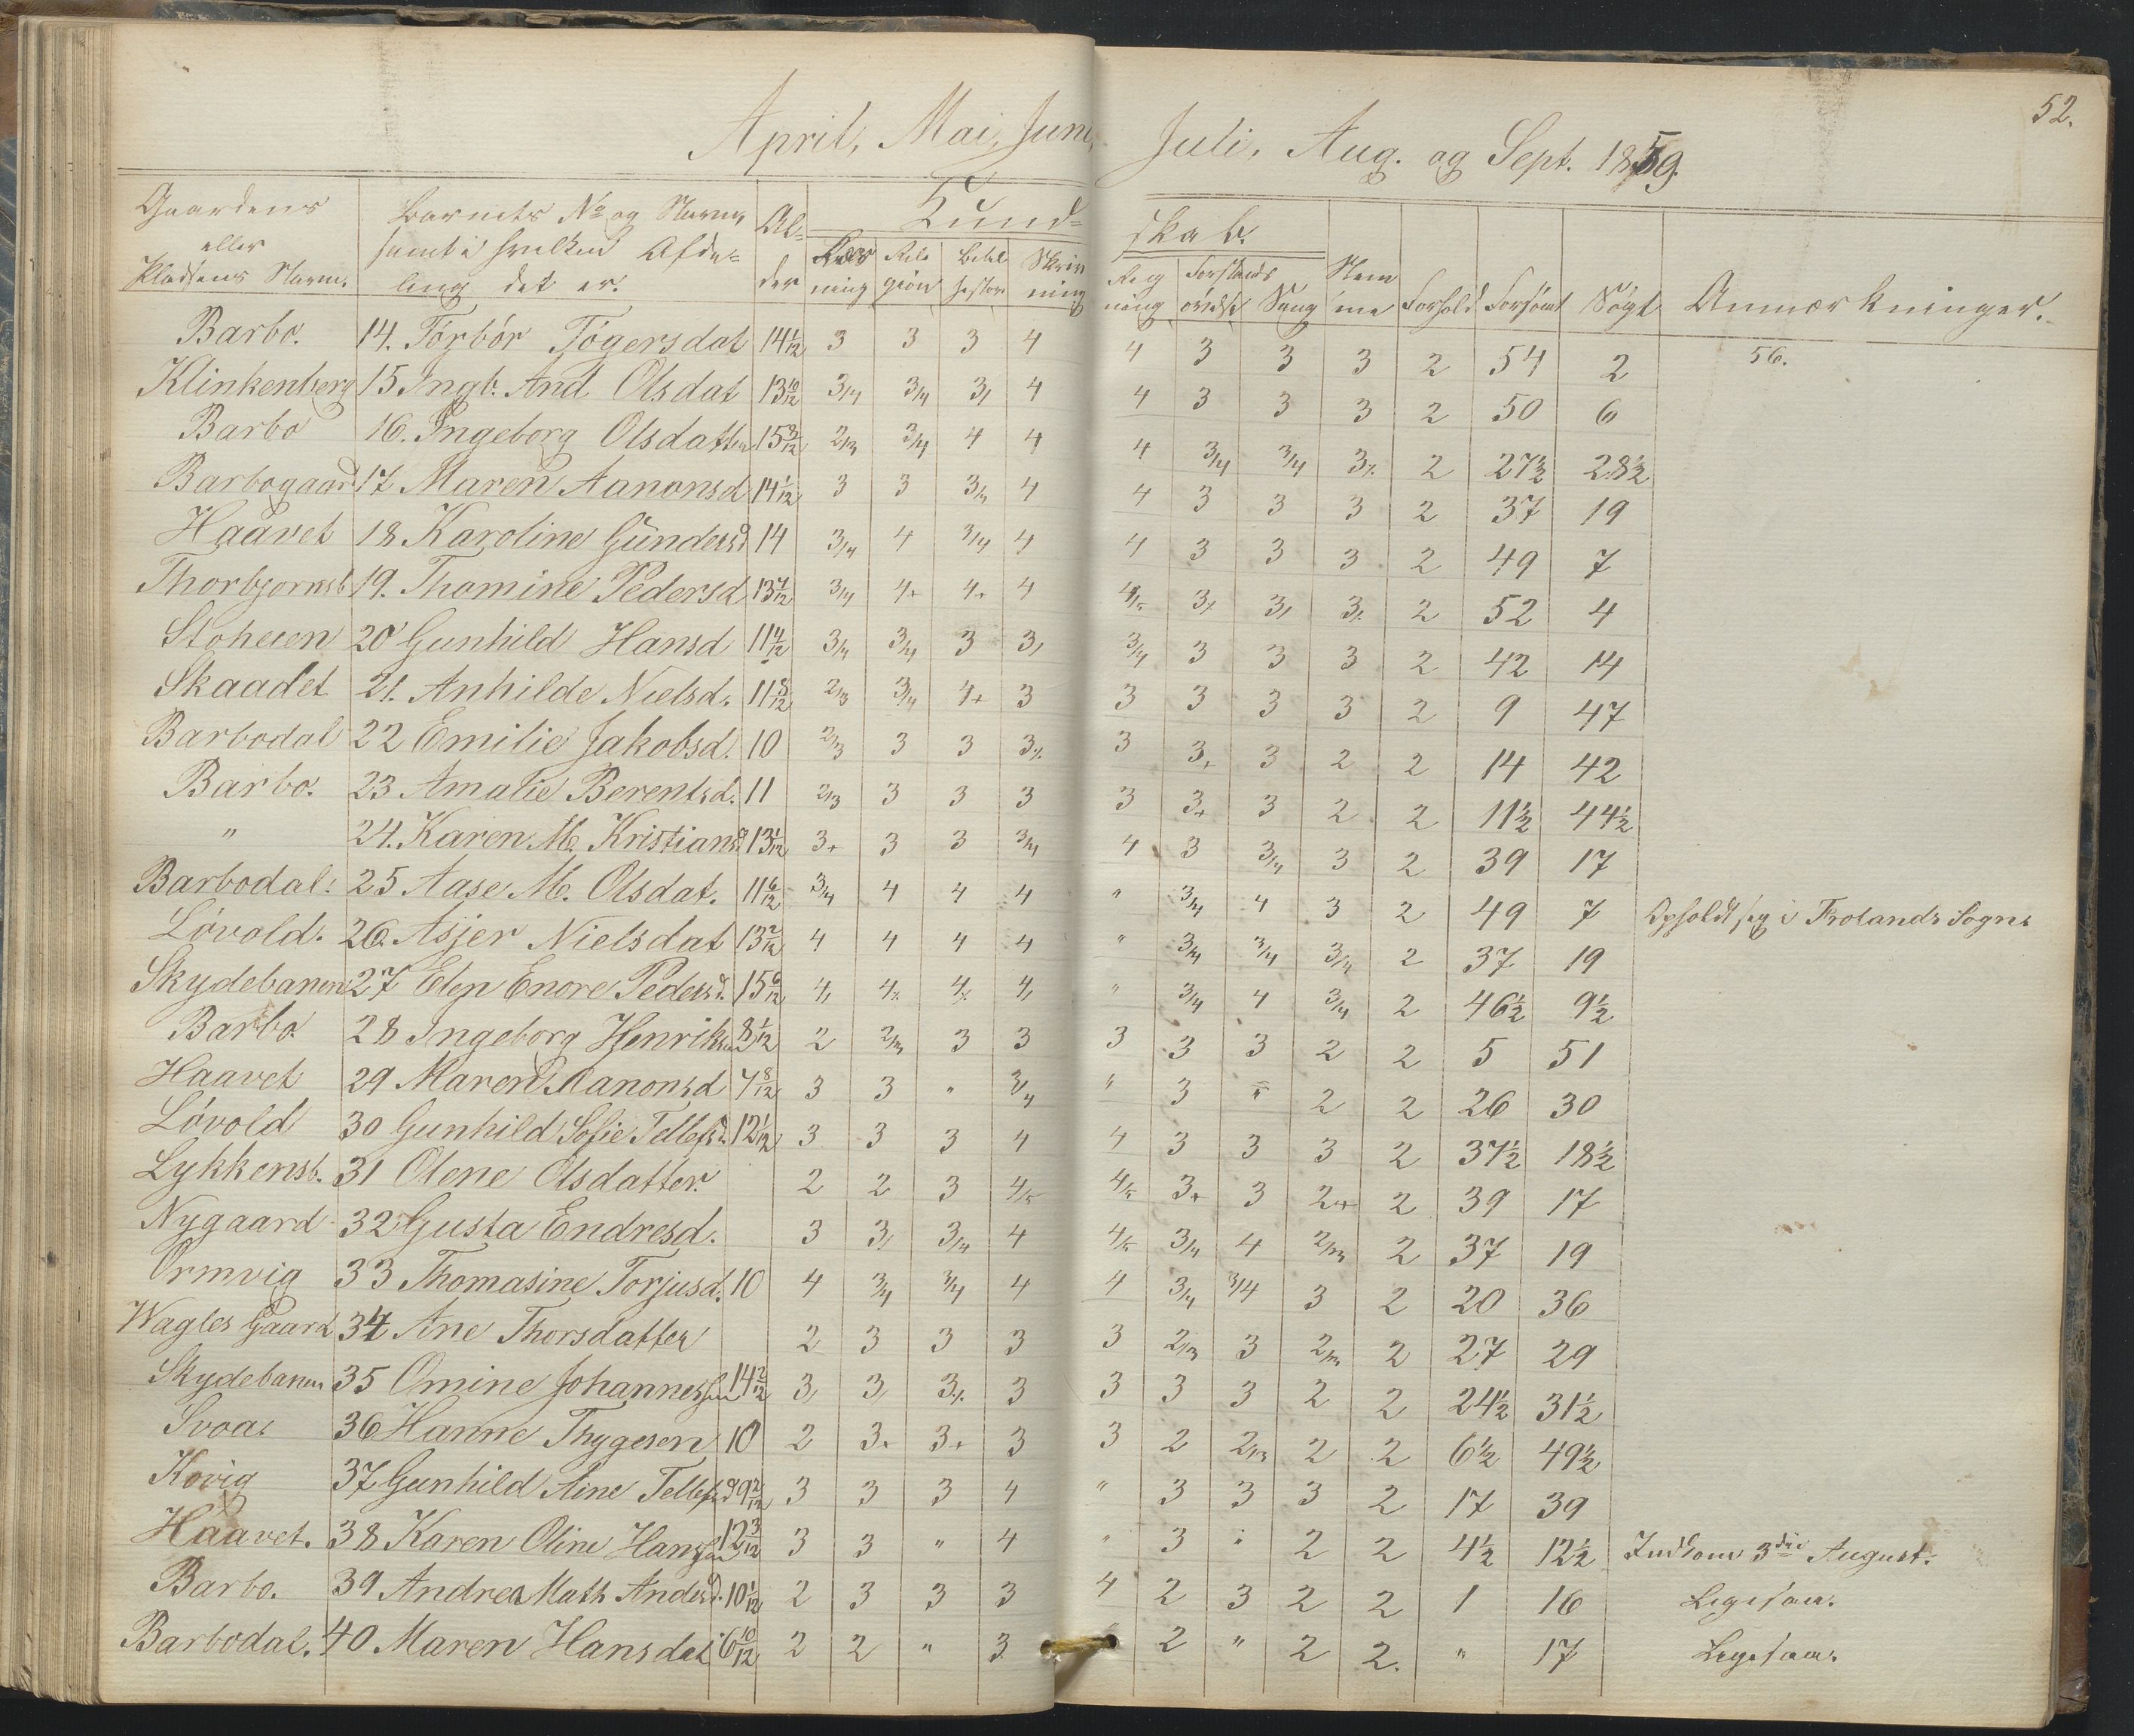 52.
April, Mai, Juni, Juli, Aug. og Sept. 1859.
Gaardens eller Pladsens Navn. | Barnets No og Navn samt i hvilken Afdeling det er. | Alder | Kundskab. | Læsning | Religion | Bibelhistor | Skrivning | Regning | Forstands | Sang | Stemme | Forhold | Forsømt | Søgt | Anmærkninger.
Barbo. 14. Torbór Tógersdat 14 1/12 3 3 3 4 4 3 3 3 2 54 2 56.
Klinkenberg 15 Ingb. And Olsdat 13 6/12 3/4 3/4 3/ 4 4 3 3 3 2 50 6
Barbo 16. Ingeborg Olsdatter 15 3/12 2/3 3/4 4 4 4 3/4 3/4 3% 2 27 1/2 28 1/2
Barbogaard 17 Maren Aanonsd 14 1/12 3 3 3/4 4 4 3 3 3 2 37 19
Haavet 18 Karoline Gundersd 14 3/4 4 3/4 4 4 3 3 3 2 49 7
Thorbjornsb 19. Thomine Pedersd 13 7/12 3/4 4+ 4+ 4 4/5 3% 3/ 3% 2 52 4
Stoheien 20 Gunhild Hansd 11 4/12 3/4 3/4 3 3/ 3/4 3 3 3 2 42 14
Skaadet 21. Anhilde Nielsd. 11 8/12 2/3 3/4 4+ 3 3 3 3 3 2 9 47
Barbodal 22 Emilie Jakobsd. 10 2/3 3 3 3% 3 3+ 3 2 2 14 42
Barbo. 23 Amalie Berentsd. 11 2/3 3 3 3 3 3+ 3 2 2 11 1/2 44 1/2
" 24. Karen M. Kristiansd 13 1/12 3+ 3 3 3/4 4 3 3/4 3 2 39 17
Barbodal. 25 Aase M. Olsdat. 11 6/12 3/4 4 4 4 " 3/4 4 3 2 49 7 Opholdt sig i Frolands Sogn
Lóvold. 26. Asjer Nielsdat 13 2/12 4 4 4 4 " 3/4 3/4 3/4 2 37 19
Skydebanen 27 Elen Enore Pedersd. 15 6/12 4/ 4% 4% 4/ " 3/4 4 3/4 2 46 1/2 9 1/2
Barbo 28 Ingeborg Henriksen 8 1/12 2 2/3 3 3 3 3 3 2 2 5 51
Haavet 29 Maren Aanonsd 7 8/12 3 3 " 3/4 " 3 " 2 2 26 30
Lóvold 30 Gunhild Sofie Tellefsd. 12 1/12 3 3 3 4 4 3 3 3 2 37 1/2 18 1/2
Lykkensb. 31 Olene Olsdatter. 2 2 3 4/5 4/5 3+ 3 2+ 2 39 17
Nygaard 32 Gusta Endresd. 3 3/ 3/4 4 4/5 3/4 4 2/3 2 37 19
Ormvig 33 Thomasine Torjusd. 10 4 3/4 3/4 4 4 3/4 3/4 3 2 20 36
Wagles Gaard 34 Ane Thorsdatter 2 3 3 3 3 2/3 3 2/3 2 27 29
Skydebanen 35 Omine Johannessen 14 2/12 3/ 3/ 3% 3 3 3 3 2 2 24 1/2 31 1/2
Svoas 36 Hanne Thygesen 10 2 3+ 3+ 3 3 2 2/3 2 2 6 1/2 49 1/2
Kovig 37 Gunhild Aine Tellefsd 9 2/12 3 3 3 4 " 3 3 3 2 17 39
Haavet. 38 Karen Oline Hanssen 12 3/12 3 3 " 4 " 3 " 2 2 4 1/2 12 1/2 Indkom 3die August.
Barbo. 39 Andrea Math Andersd. 10 1/12 2 3 3 3 4 2 3 2 2 1 16 Ligesaa.
Barbodal. 40 Maren Hansdat 6 10/12 2 2 " 3 " 2 " 2 2. " 17 Ligesaa.